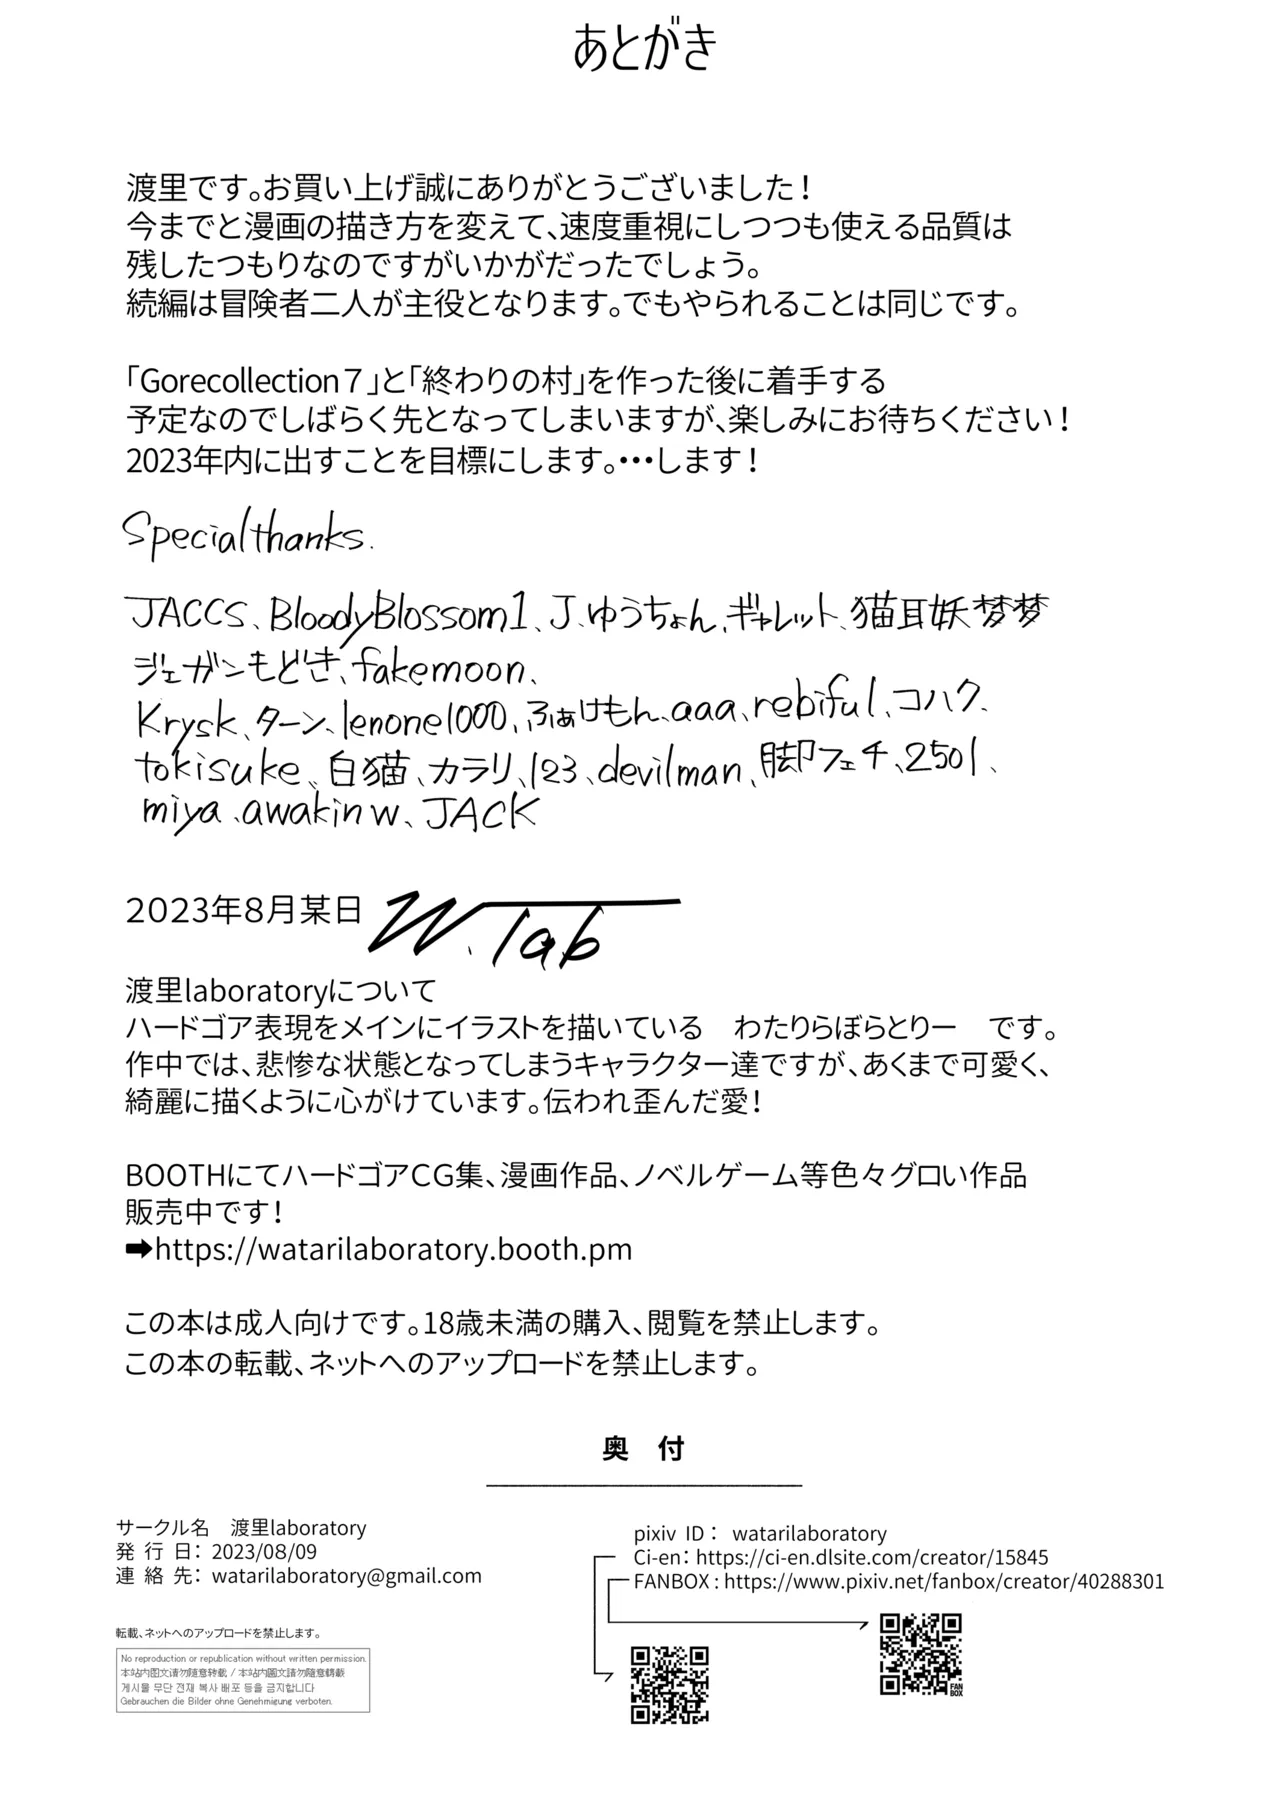 あとがき
渡里です。お買い上げ誠にありがとうございました！
今までと漫画の描き方を変えて、速度重視にしつつも使える品質は
残したつもりなのですがいかがだったでしょう。
続編は冒険者二人が主役となります。でもやられることは同じです。
「Gorecollection７」と「終わりの村」を作った後に着手する
予定なのでしばらく先となってしまいますが、楽しみにお待ちください！
2023年内に出すことを目標にします。・・・します！
Specialthanks.
JACCS、BloodyBlossom1、J、ゆうちょん、ギャレット、猫耳妖梦梦
ジェガンもどき、fakemoon、
Krysk、ターン、lenone1000、ふぁけもん、aaa、rebiful、コハク、
tokisuke、白猫、カラリ、123、devilman、脚フェチ、2501、
miya、awakinw、JACK
2023年8月某日 W.lab
渡里laboratoryについて
ハードゴア表現をメインにイラストを描いている　わたりらぼらとりー　です。
作中では、悲惨な状態となってしまうキャラクター達ですが、あくまで可愛く、
綺麗に描くように心がけています。伝われ歪んだ愛！
BOOTHにてハードゴアCG集、漫画作品、ノベルゲーム等色々グロい作品
販売中です！
➡https://watarilaboratory.booth.pm
この本は成人向けです。18歳未満の購入、閲覧を禁止します。
この本の転載、ネットへのアップロードを禁止します。
奥　付
サークル名　渡里laboratory
発 行 日： 2023/08/09
連 絡 先： watarilaboratory@gmail.com
pixiv ID： watarilaboratory
Ci-en：https://ci-en.dlsite.com/creator/15845
FANBOX：https://www.pixiv.net/fanbox/creator/40288301
転載、ネットへのアップロードを禁止します。
No reproduction or republication without written permission.
本站内图文请勿随意转载 / 本站內圖文請勿隨意轉載
게시물 무단 전재 복사 배포 등을 금지합니다
Gebrauchen die Bilder ohne Genehmigung verboten.
FAN
BOX